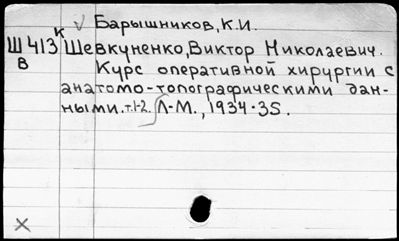 √ Барышников, К.И.
к
Ш413 Шевкуненко, Виктор Николаевич.
В Курс оперативной хирургии с
анатомо-топографическими дан-
ными. т.1-2. Л-М., 1934-35.
×